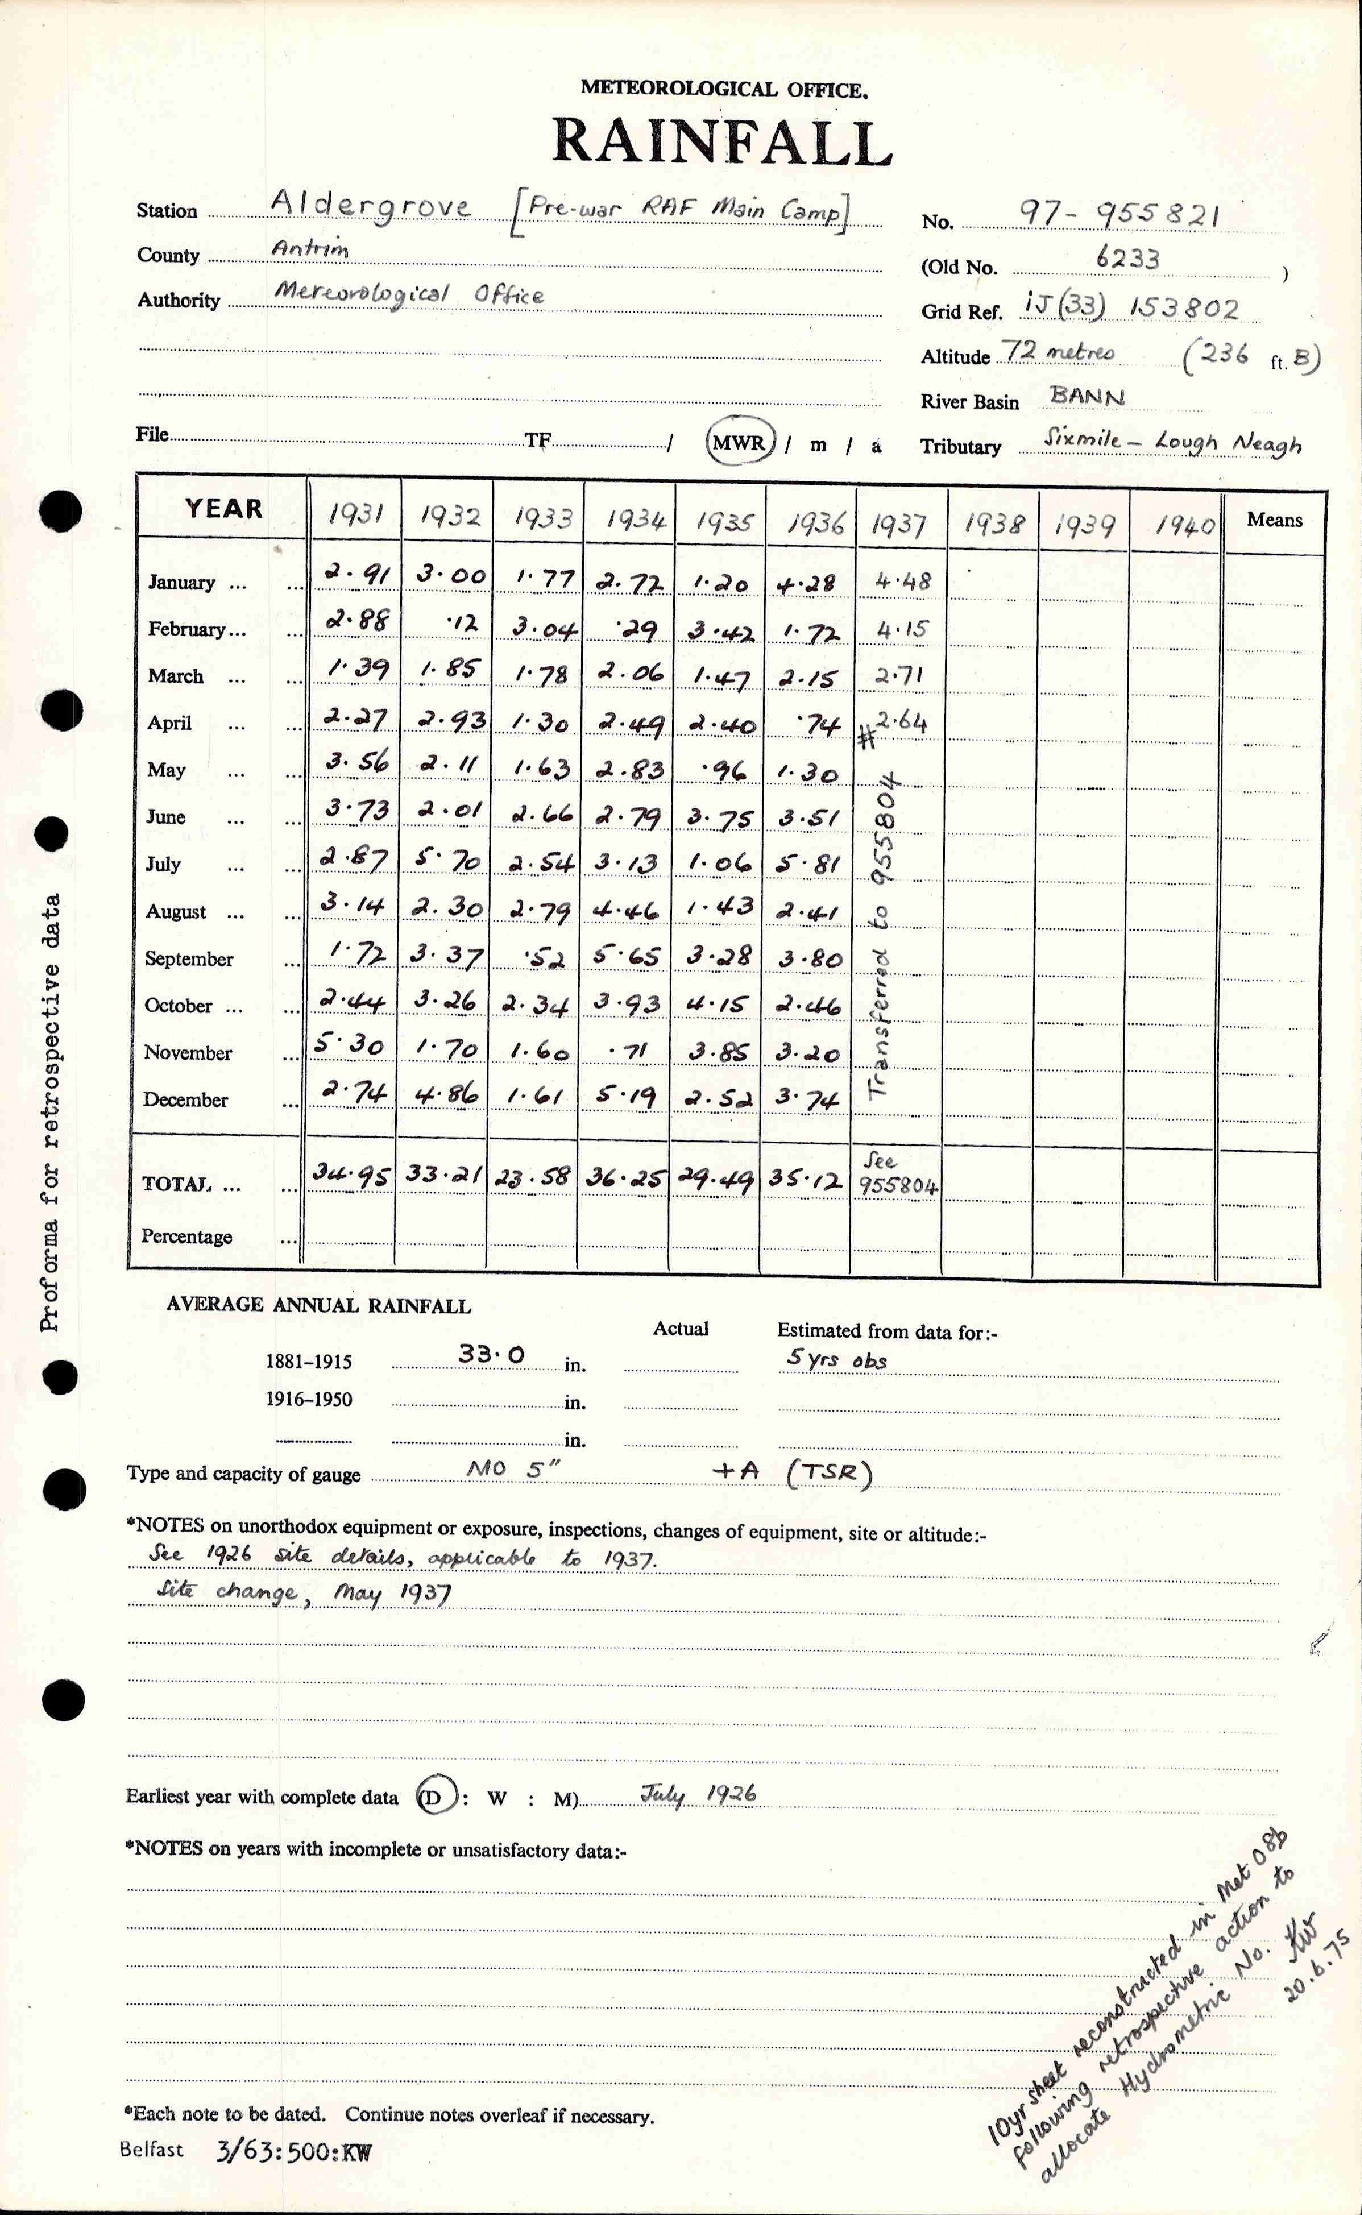 METEOROLOGICAL OFFICE.
RAINFALL
Station Aldergrove [Pre-war RAF Main Camp]
No. 97-955821
County Antrim
(Old No. 6233 )
Authority Meteorological Office
Grid Ref. iJ(33) 153802
Altitude 72 metres (236 ft. B)
River Basin BANN
File TF / MWR / m / a
Tributary Sixmile - Lough Neagh
YEAR 1931 1932 1933 1934 1935 1936 1937 1938 1939 1940 Means
January ... ... 2.91 3.00 1.77 2.72 1.20 4.28 4.48
February... ... 2.88 .12 3.04 .29 3.42 1.72 4.15
March ... ... 1.39 1.85 1.78 2.06 1.47 2.15 2.71
April ... ... 2.27 2.93 1.30 2.49 2.40 .74 #2.64
May ... ... 3.56 2.11 1.63 2.83 .96 1.30
June ... ... 3.73 2.01 2.66 2.79 3.75 3.51
July ... ... 2.87 5.70 2.54 3.13 1.06 5.81
August ... ... 3.14 2.30 2.79 4.46 1.43 2.41
September ... 1.72 3.37 .52 5.65 3.28 3.80
October ... ... 2.44 3.26 2.34 3.93 4.15 2.46
November ... 5.30 1.70 1.60 .71 3.85 3.20
December ... 2.74 4.86 1.61 5.19 2.52 3.74
Transferred to 955804
TOTAL ... ... 34.95 33.21 23.58 36.25 29.49 35.12 See 955804
Percentage ...
Proforma for retrospective data
AVERAGE ANNUAL RAINFALL
Actual Estimated from data for:-
1881-1915 33.0 in. 5 yrs obs
1916-1950 in.
in.
Type and capacity of gauge MO 5" +A (TSR)
*NOTES on unorthodox equipment or exposure, inspections, changes of equipment, site or altitude:-
See 1926 site details, applicable to 1937.
Site change, May 1937
Earliest year with complete data (D : W : M) July 1926
*NOTES on years with incomplete or unsatisfactory data:-
10yr sheet reconstructed in Met O8b
following retrospective action to
allocate Hydrometric No. KW
20.6.75
*Each note to be dated. Continue notes overleaf if necessary.
Belfast 3/63:500:KW